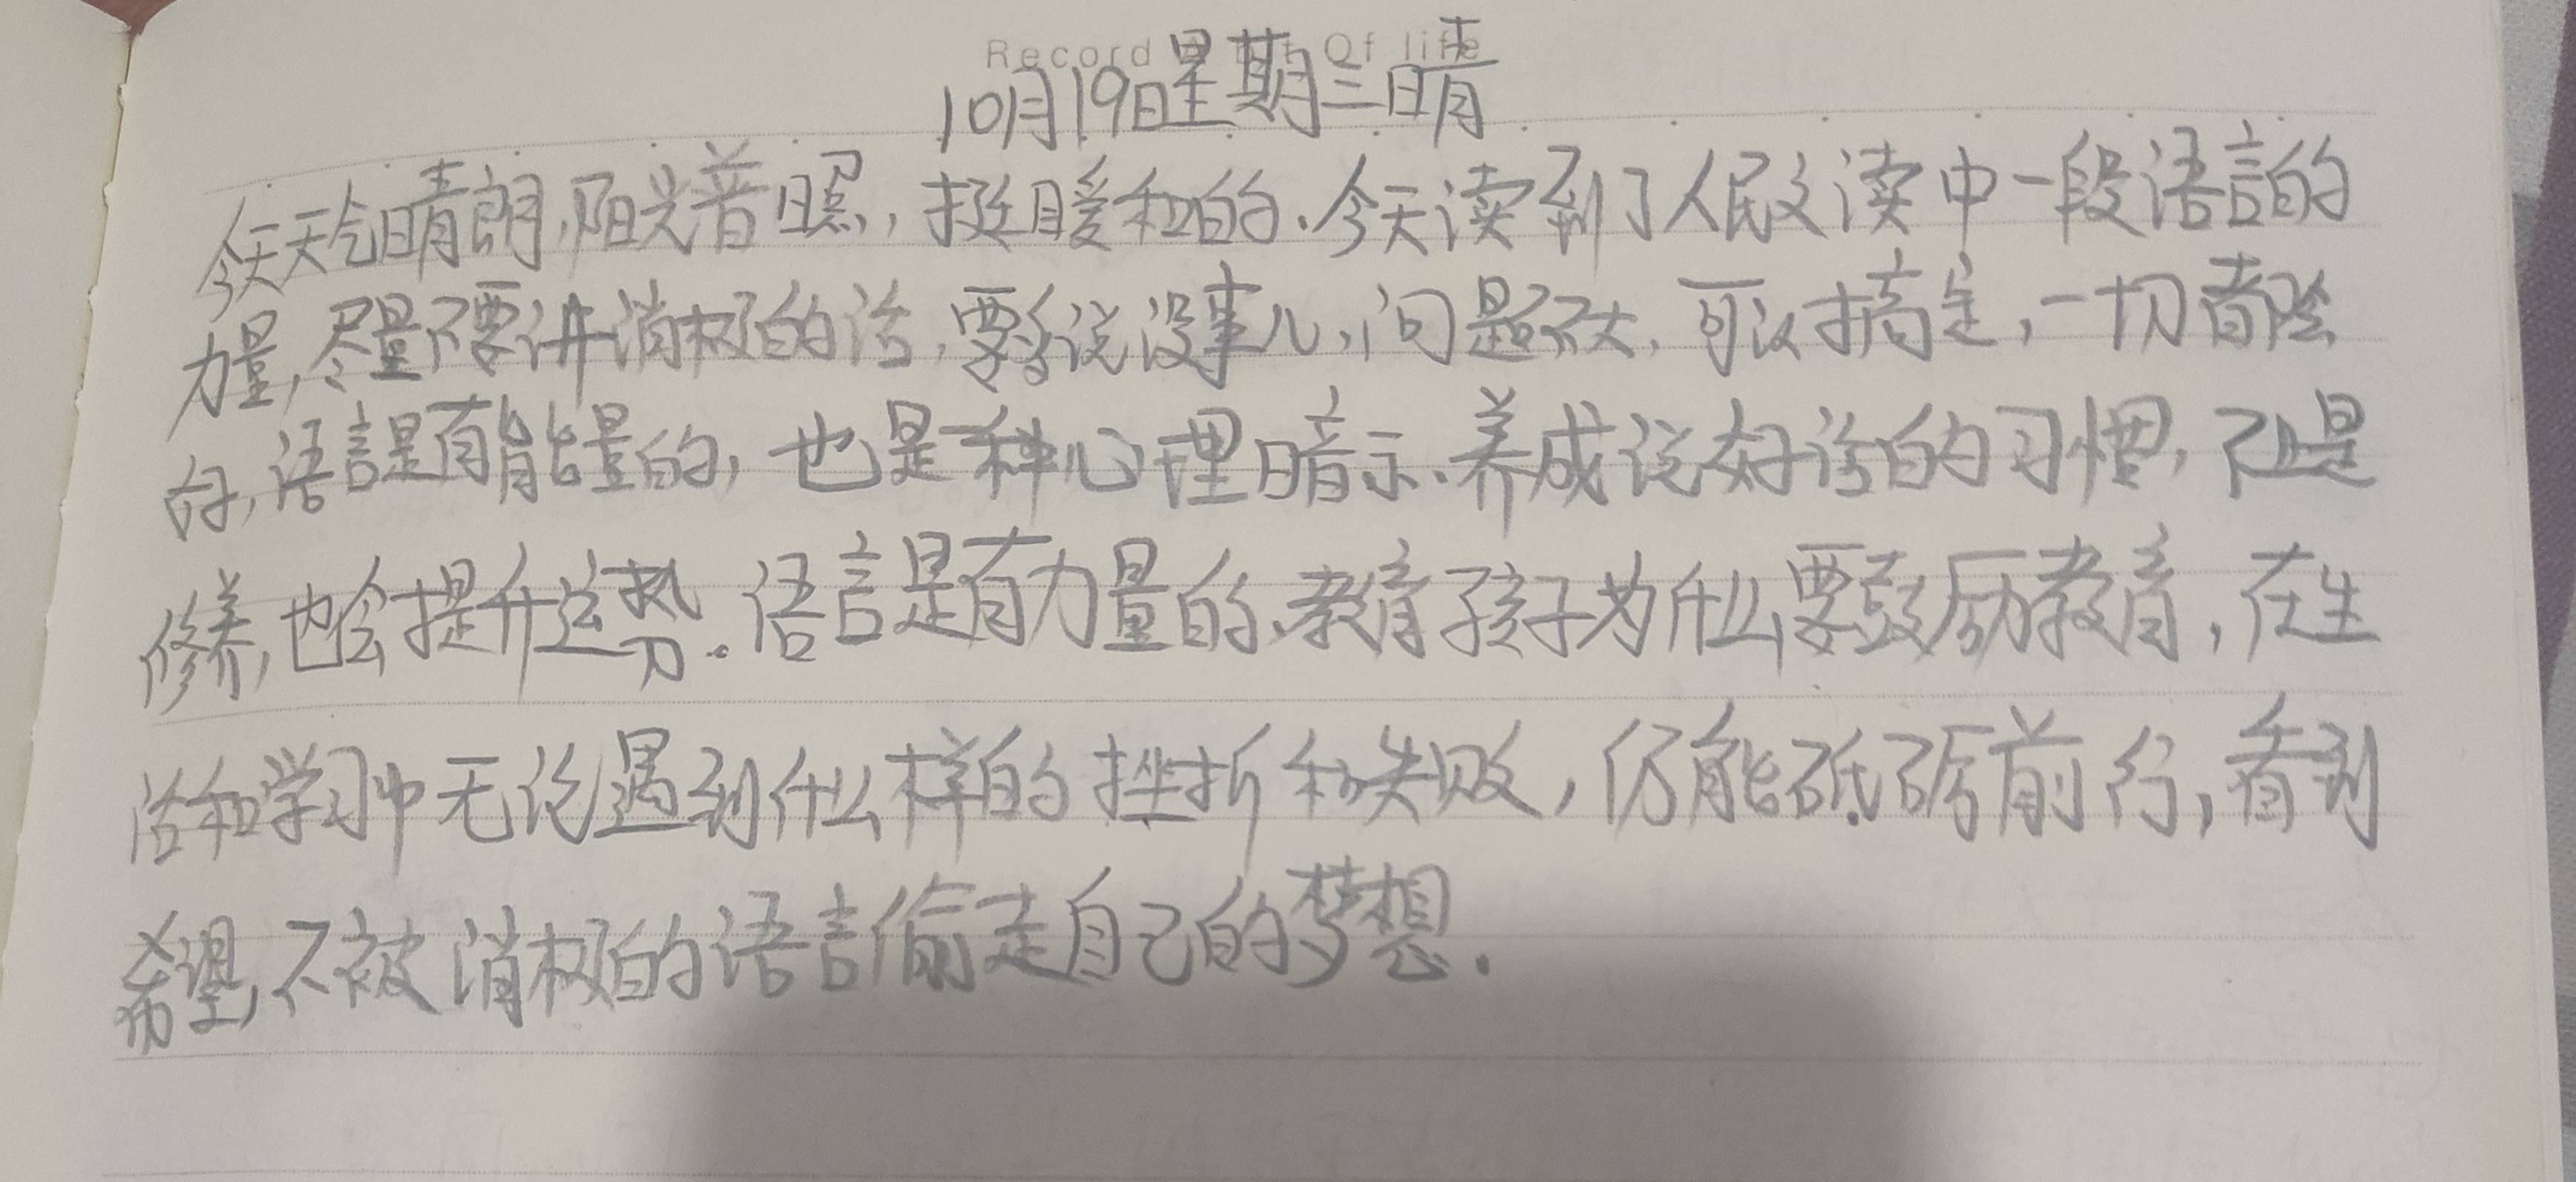 Record Of life
10月19日星期三晴
今天天气晴朗,阳光普照,挺暖和的.今天读到了人民文读中一段语言的
力量,尽量不要讲消极的话,要多说没事儿,问题不大,可以搞定,一切都会
好,语言是有能量的,也是一种心理暗示.养成说好话的习惯,不止是
修养,也会提升运势。语言是有力量的,教育孩子为什么要鼓励教育,在生
活和学习中无论遇到什么样的挫折和失败,仍能砥砺前行,看到
希望,不被消极的语言偷走自己的梦想.